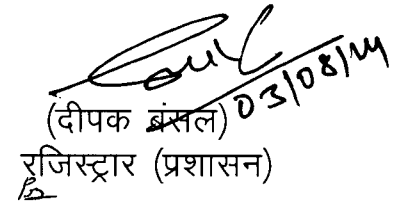 03/08/24
(दीपक बंसल)
रजिस्ट्रार (प्रशासन)